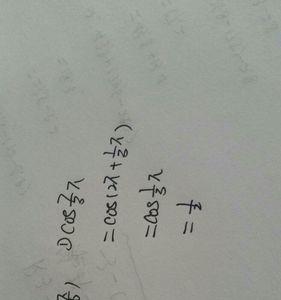 1) cos 7/3 π
= cos(2π + 1/3 π)
= cos 1/3 π
= 1/2